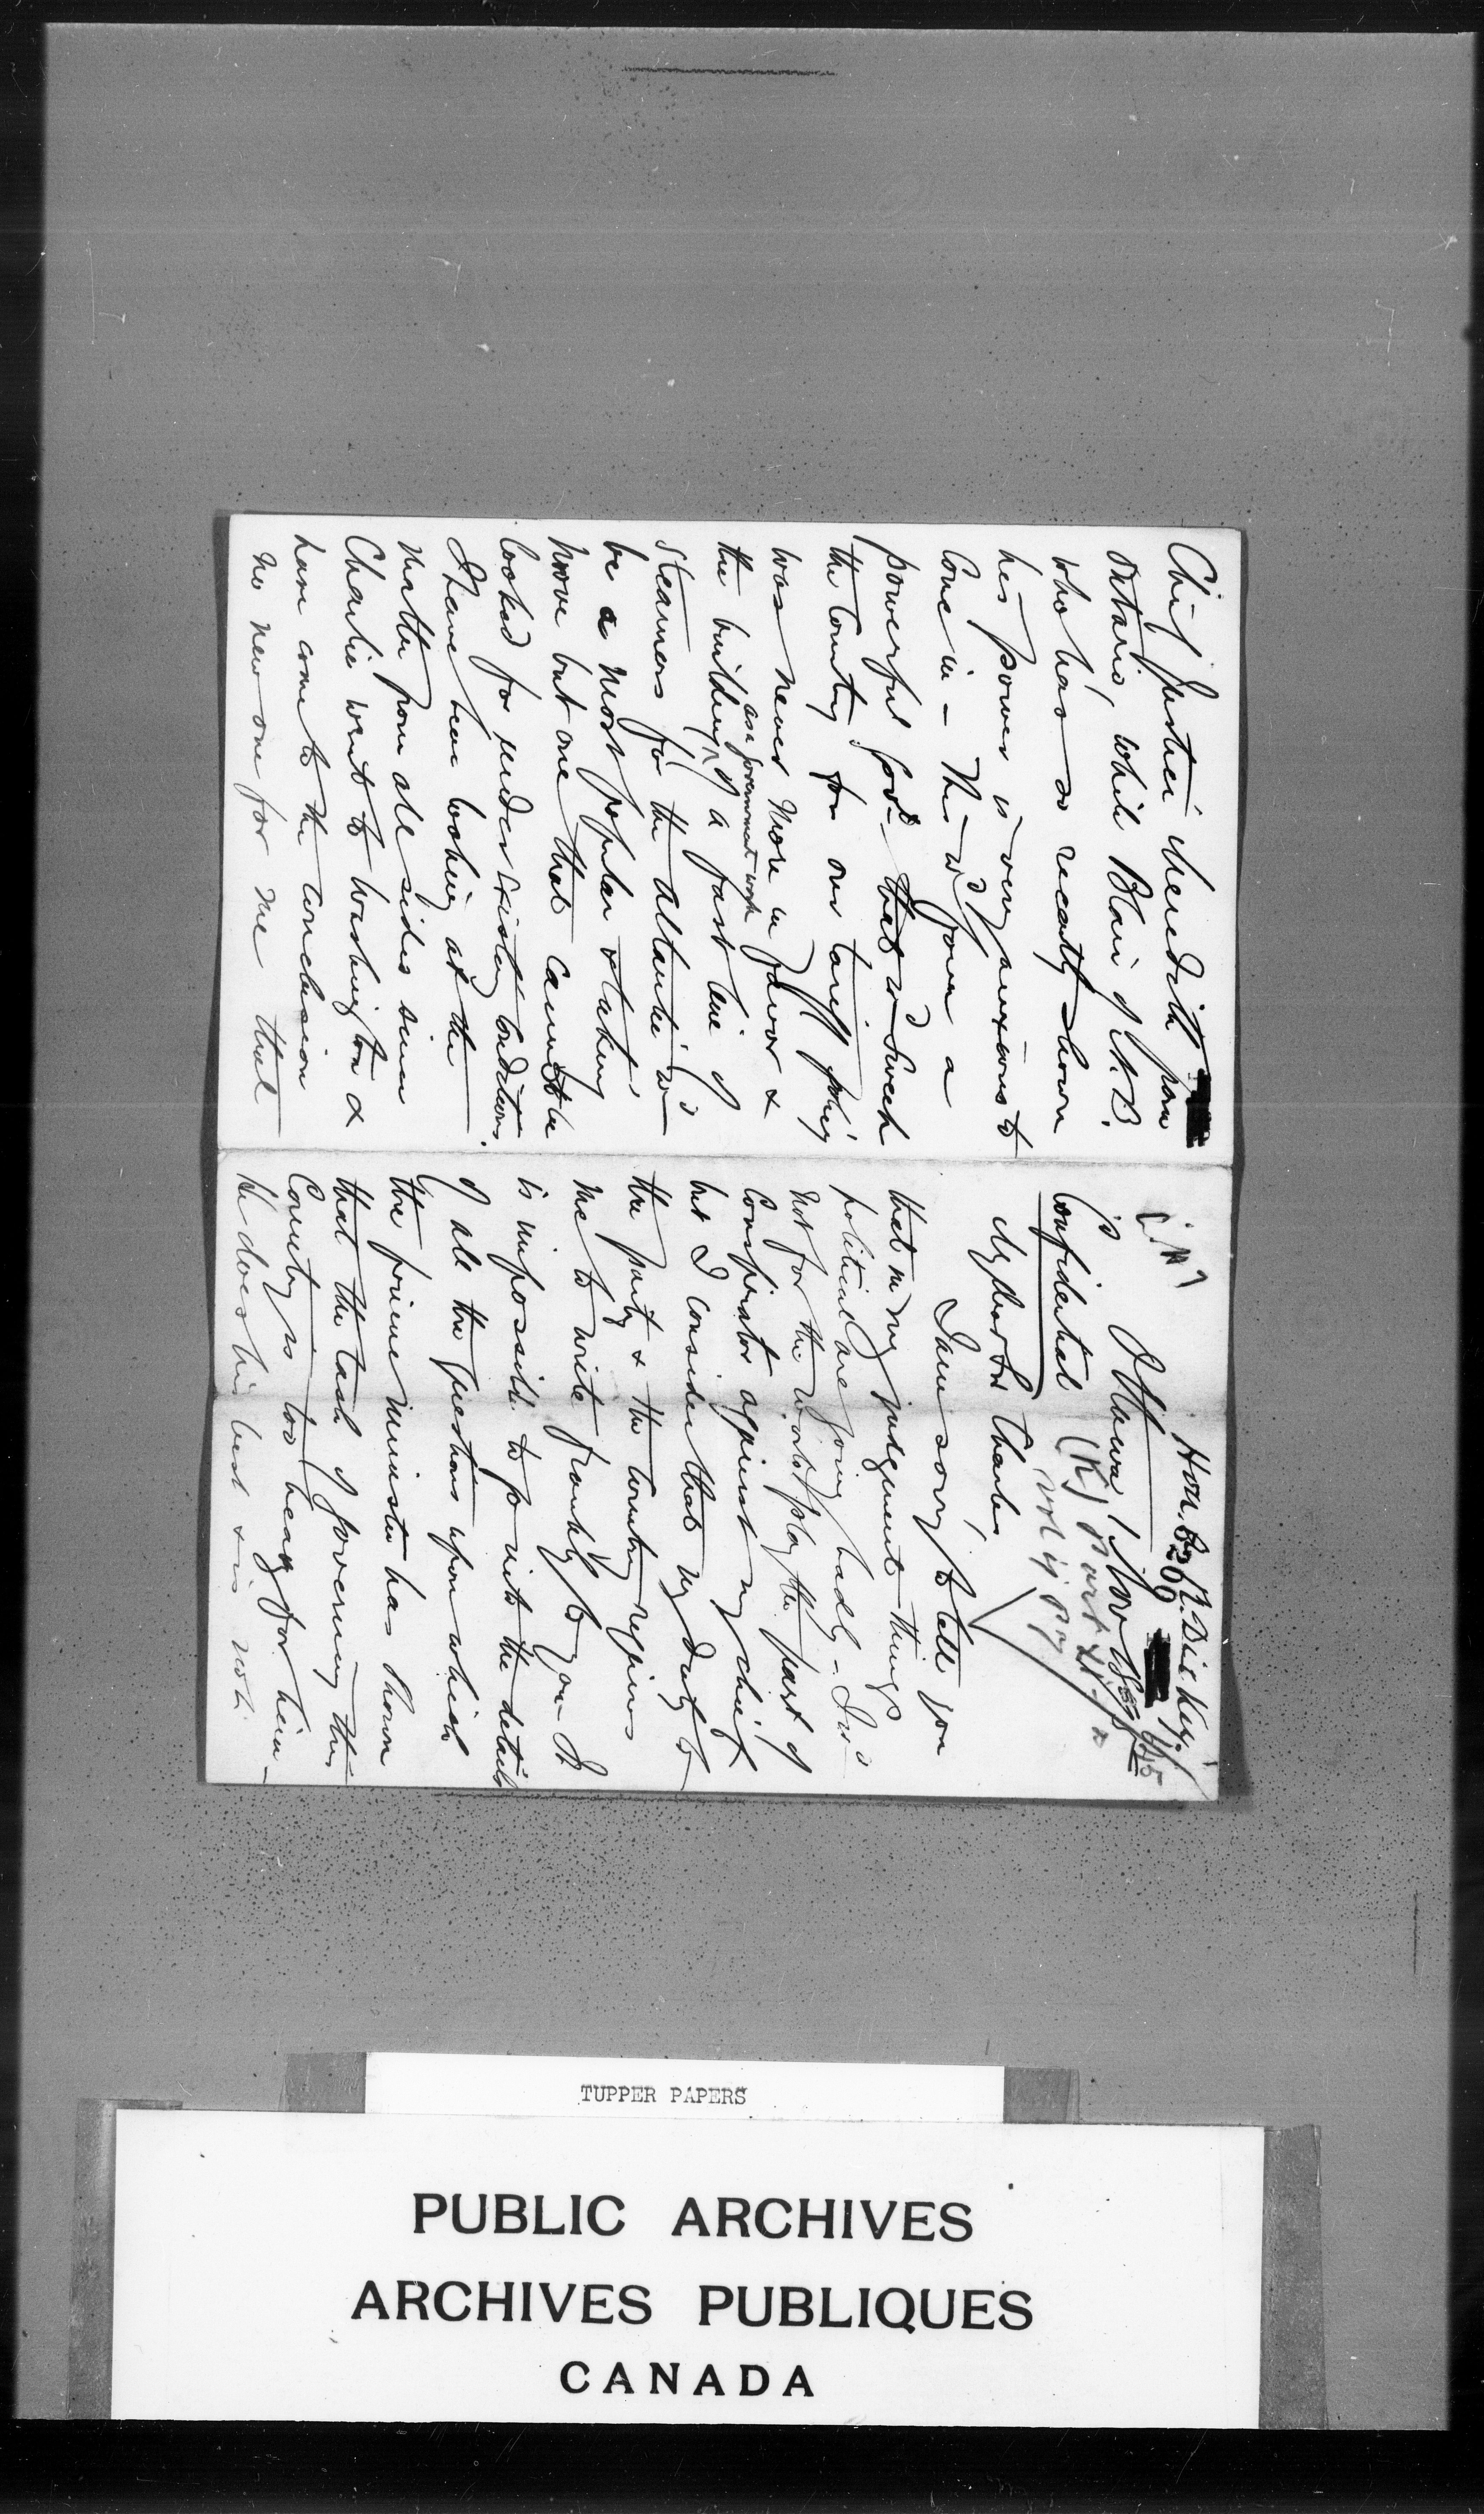 Hon. A. R. Dickey.
Ottawa, 1 Nov
Confidential
My dear Sir Charles,
I am sorry to tell you
that in my judgment things
political are going badly – I wd
not for the world play the part of
conspirator against my chief
but I consider that my duty to
the party & the country requires
me to write frankly to you. It
is impossible to go into the details
of all the questions upon which
the prime minister has shown
that the task of governing this
country is too heavy for him –
He does his best & is not
Chief Justice Meredith from
Ontario, while Blair of N.B.
who has so recently shown
his power is very anxious to
come in – This wd form a
powerful govt that wd sweep
the country for our tariff policy
was never more in favor &
the building as a government work of a fast line of
steamers for the Atlantic wd
be a most popular & taking
move but one that cannot be
looked for under existing conditions.
I have been looking at the
matter from all sides since
Charlie went to Washington &
have come to the conclusion
no new one for me that
TUPPER PAPERS
PUBLIC ARCHIVES
ARCHIVES PUBLIQUES
CANADA